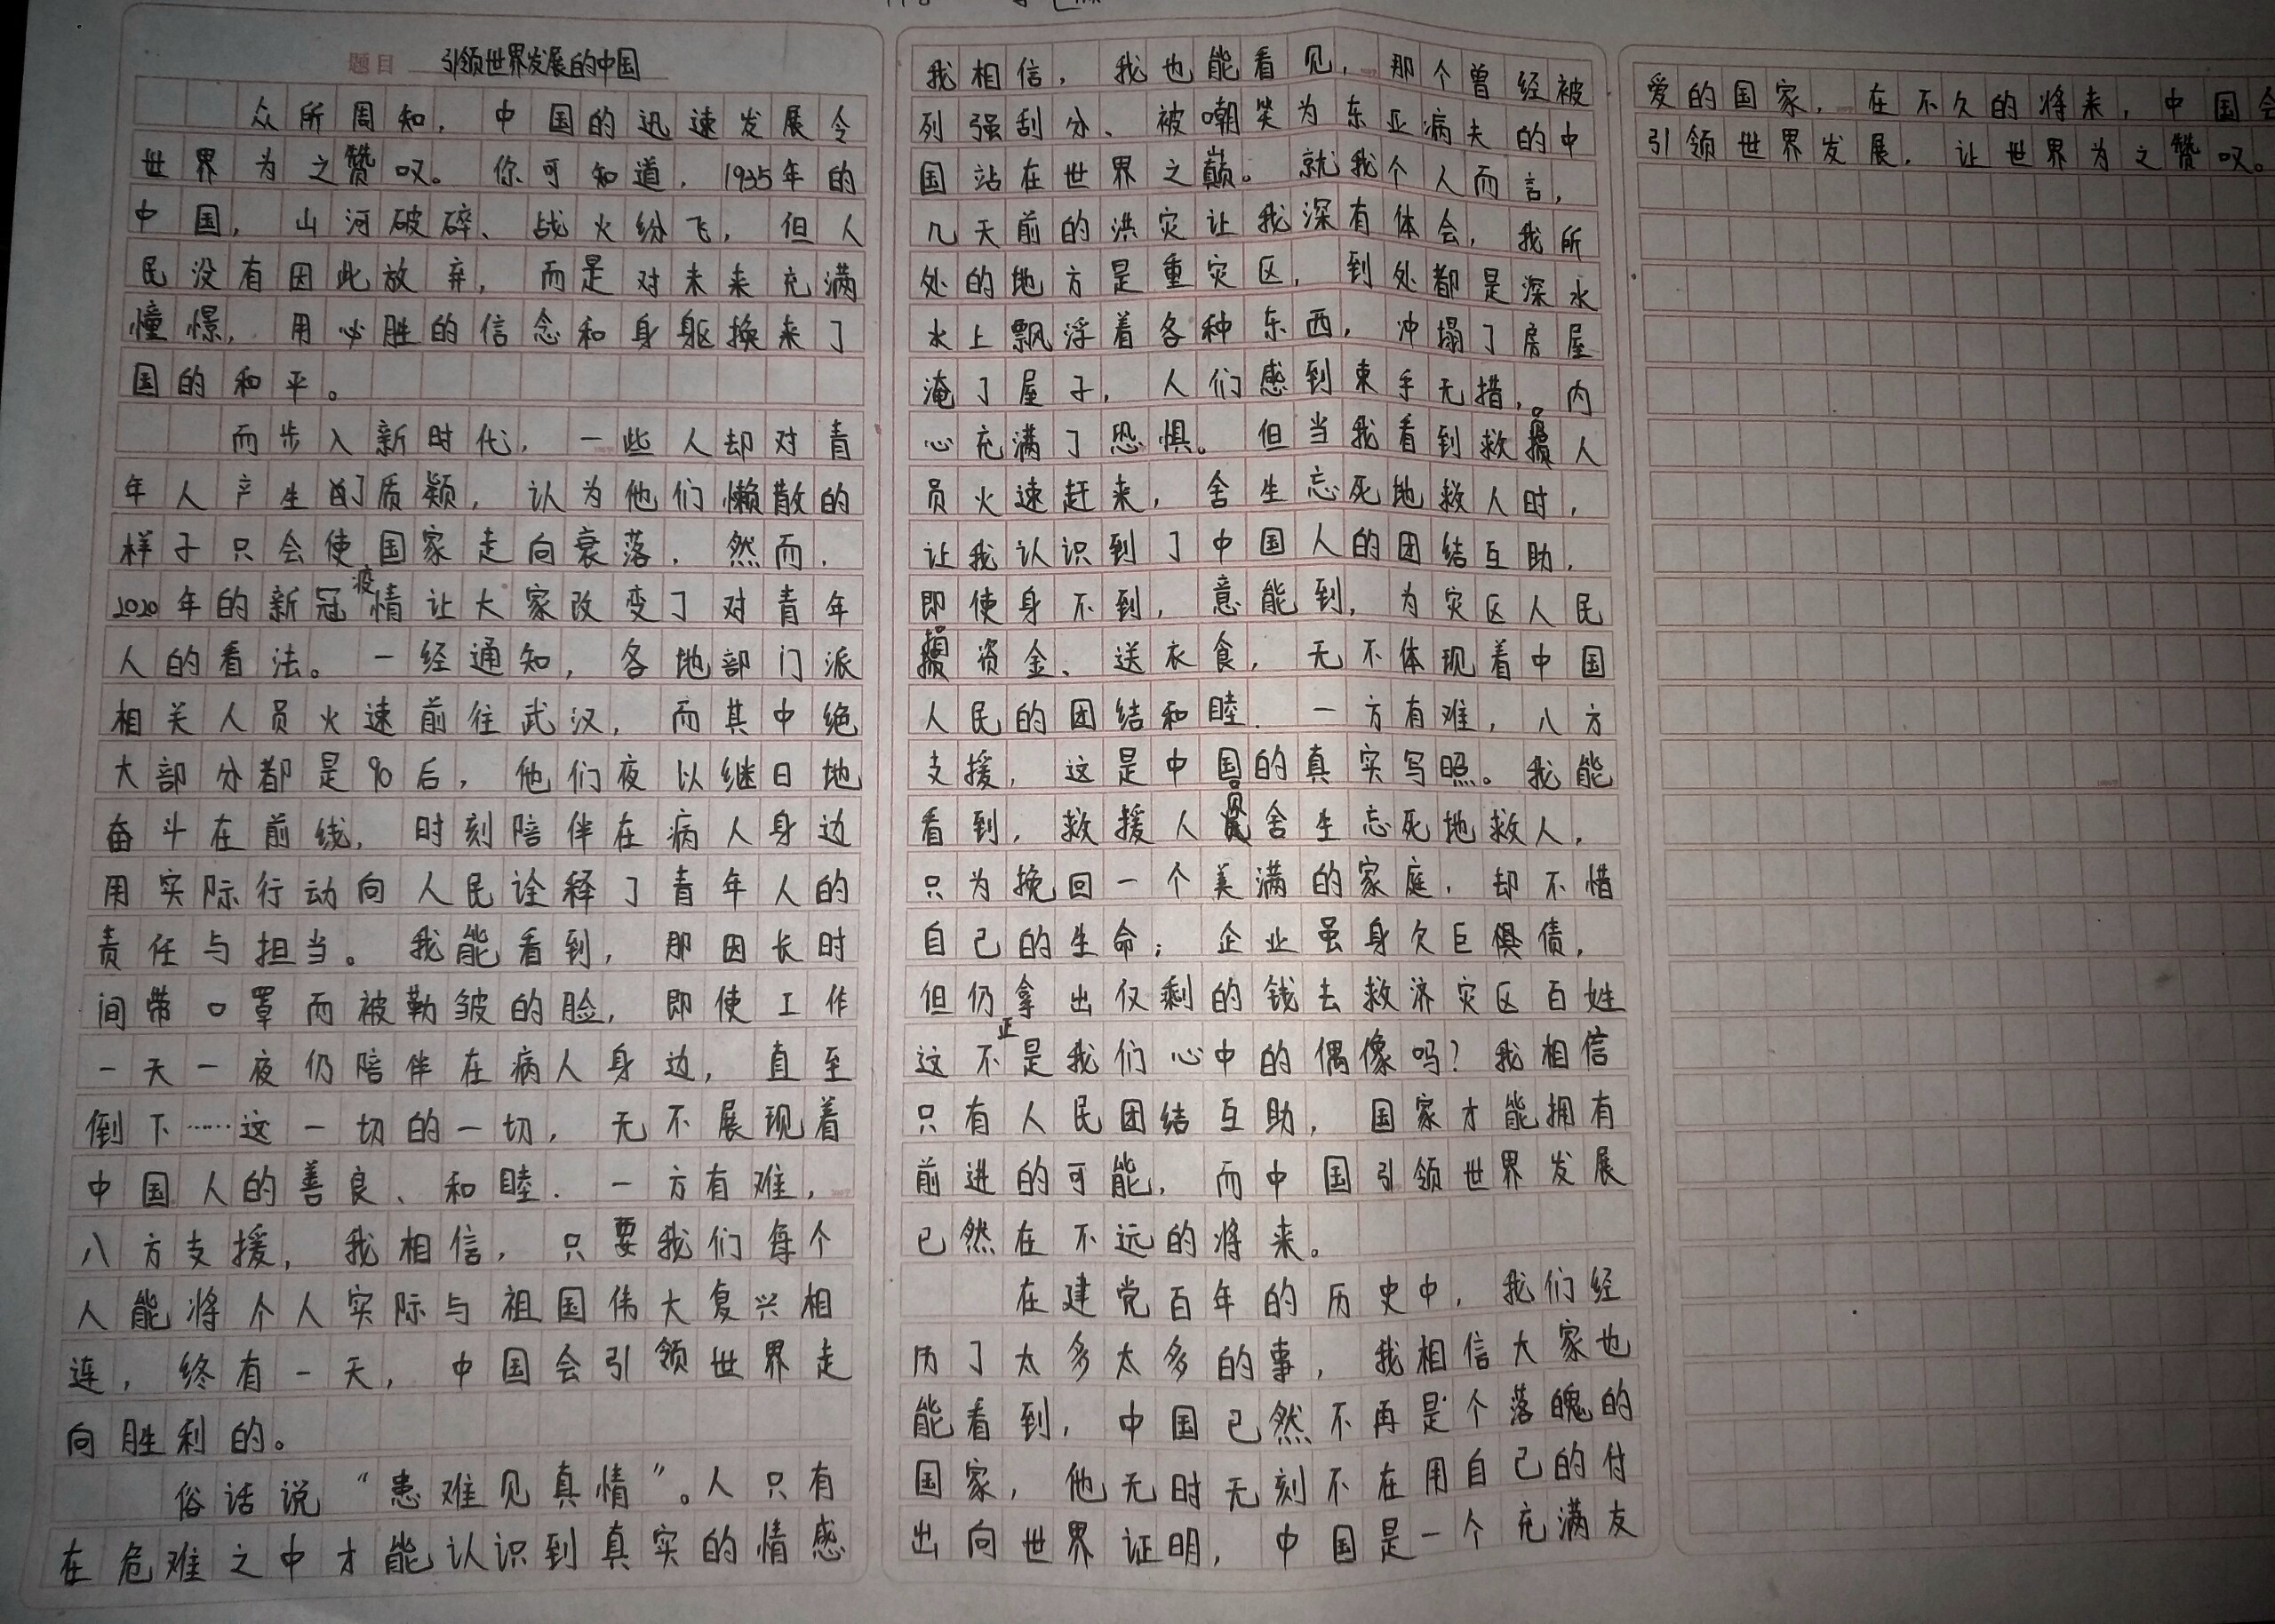 题目 引领世界发展的中国
众所周知，中国的迅速发展令
世界为之赞叹。你可知道，1935年的
中国，山河破碎、战火纷飞，但人
民没有因此放弃，而是对未来充满
憧憬，用必胜的信念和身躯换来了
国的和平。
而步入新时代，一些人却对青
年人产生的质颖，认为他们懒散的
样子只会使国家走向衰落．然而．
2020年的新冠疫情让大家改变了对青年
人的看法。一经通知，各地部门派
相关人员火速前往武汉，而其中绝
大部分都是90后，他们夜以继日地
奋斗在前线，时刻陪伴在病人身边
用实际行动向人民诠释了青年人的
责任与担当。我能看到，那因长时
间带口罩而被勒皱的脸，即使工作
一天一夜仍陪伴在病人身边，直至
倒下……这一切的一切，无不展现着
中国人的善良、和睦．一方有难，
八方支援，我相信，只要我们每个
人能将个人实际与祖国伟大复兴相
连，终有一天，中国会引领世界走
向胜利的。
俗话说“患难见真情”。人只有
在危难之中才能认识到真实的情感
我相信，我也能看见，那个曾经被
列强刮分、被嘲笑为东亚病夫的中
国站在世界之巅。就我个人而言，
几天前的洪灾让我深有体会，我所
处的地方是重灾区，到处都是深水
水上飘浮着各种东西，冲塌了房屋
淹了屋子，人们感到束手无措，内
心充满了恐惧。但当我看到救人
员火速赶来，舍生忘死地救人时，
让我认识到了中国人的团结互助，
即使身不到，意能到，为灾区人民
捐资金、送衣食，无不体现着中国
人民的团结和睦．一方有难，八方
支援，这是中国的真实写照。我能
看到，救援人员舍生忘死地救人，
只为挽回一个美满的家庭，却不惜
自己的生命；企业虽身欠巨惧债，
但仍拿出仅剩的钱去救济灾区百姓
这不正是我们心中的偶像吗？我相信
只有人民团结互助，国家才能拥有
前进的可能，而中国引领世界发展
已然在不远的将来。
在建党百年的历史中，我们经
历了太多太多的事，我相信大家也
能看到，中国已然不再是个落魄的
国家，他无时无刻不在用自己的付
出向世界证明，中国是一个充满友
爱的国家，在不久的将来，中国会
引领世界发展，让世界为之赞叹。